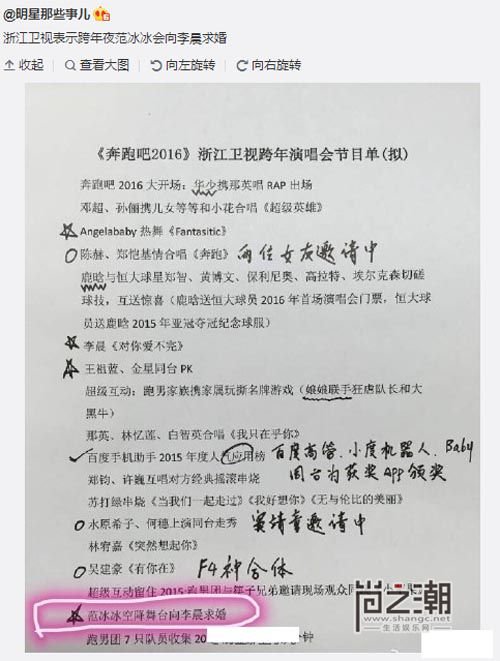 @明星那些事儿
浙江卫视表示跨年夜范冰冰会向李晨求婚
收起 查看大图 向左旋转 向右旋转
《奔跑吧2016》浙江卫视跨年演唱会节目单(拟)
奔跑吧 2016 大开场：华少携那英唱 RAP 出场
邓超、孙俪携儿女等等和小花合唱《超级英雄》
Angelababy 热舞《Fantasitic》
陈赫、郑恺基情合唱《奔跑》 两位女友邀请中
鹿晗与恒大球星郑智、黄博文、保利尼奥、高拉特、埃尔克森切磋
球技，互送惊喜（鹿晗送恒大球员 2016 年首场演唱会门票，恒大球
员送鹿晗 2015 年亚冠夺冠纪念球服）
李晨《对你爱不完》
王祖蓝、金星同台 PK
超级互动：跑男家族携家属玩撕名牌游戏（娘娘联手狂虐队长和大
黑牛）
那英、林忆莲、白智英合唱《我只在乎你》
百度手机助手 2015 年度人气应用榜 百度高管、小度机器人、Baby
同台为获奖App颁奖
郑钧、许巍互唱对方经典摇滚串烧
苏打绿串烧《当们我一起走过》《我好想你》《无与伦比的美丽》
水原希子、何穗上演同台走秀 窦靖童邀请中
林宥嘉《突然想起你》
吴建豪《有你在》 F4神合体
超级互动留住 2015:跑男团与筷子兄弟邀请现场观众同
范冰冰空降舞台向李晨求婚
跑男团 7 只队员收集 20 钟
尚之潮
SHANGC.COM
生活娱乐网
www.shangc.net